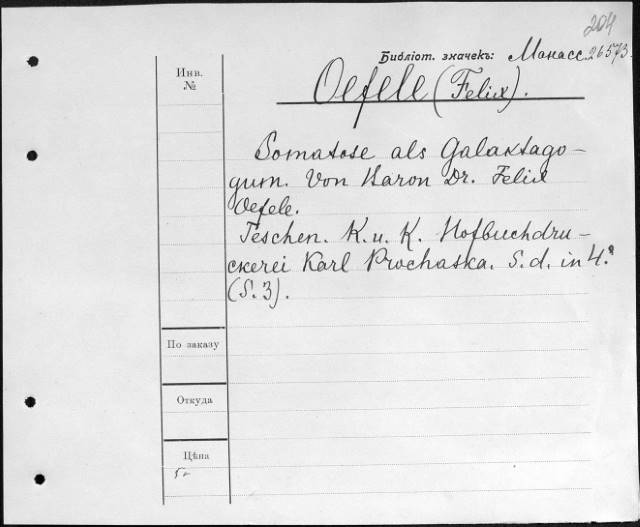 204
Библіот. значекъ: Манасс. 26573.
Инв.
№
Oefele (Felix).
Somatose als Galaktago-
gum. Von Baron Dr. Felix
Oefele.
Teschen. K. u. K. Hofbuchdru-
ckerei Karl Prochaska. S. d. in 4.°
(S. 3).
По заказу
Откуда
Цѣна